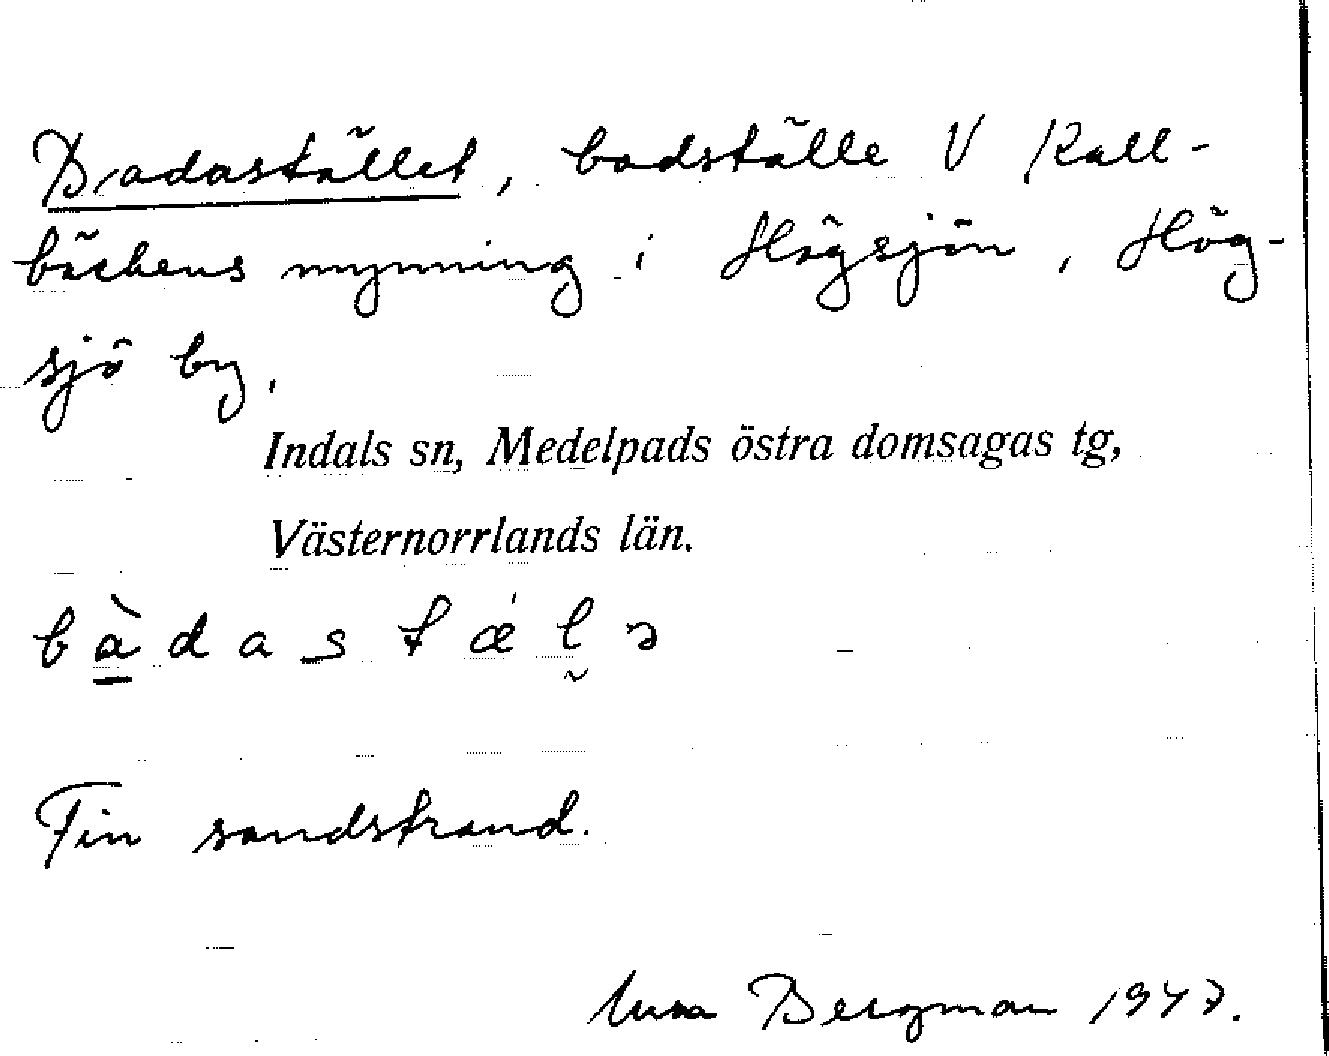 Badastället, badställe V Kall-
bäckens mynning i Högsjön, Hög-
sjö by.
Indals sn, Medelpads östra domsagas tg,
Västernorrlands län.
bàdastæ´l̬ə
Fin sandstrand.
Bergman 1947.